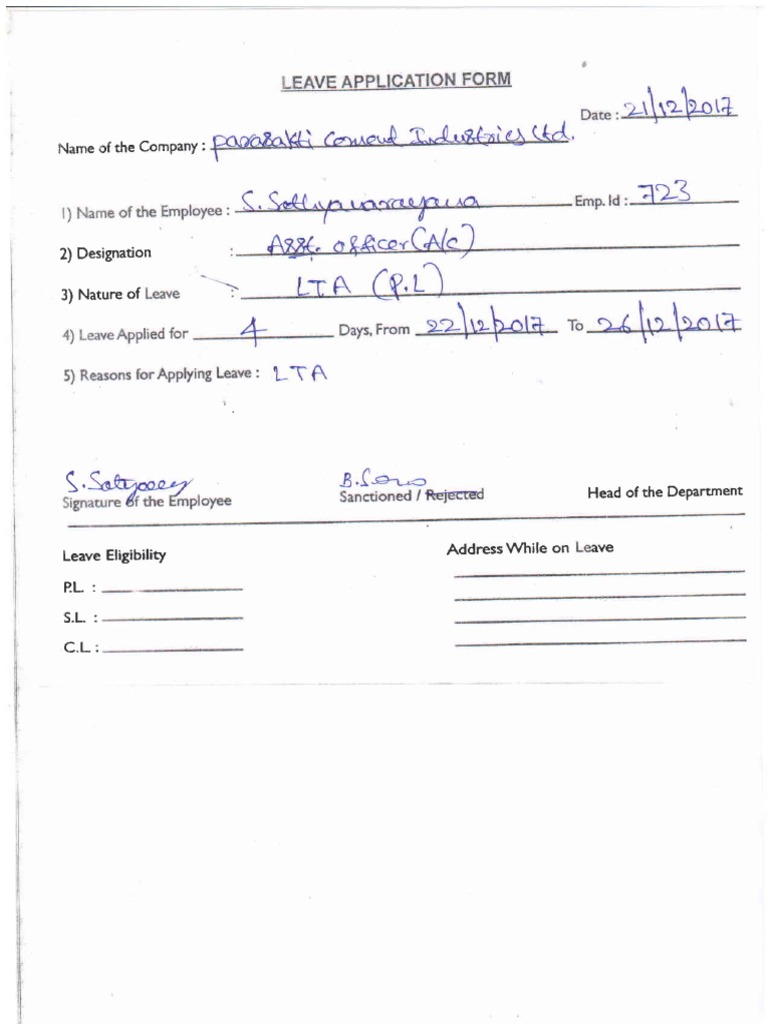 LEAVE APPLICATION FORM
Date : 21/12/2017
Name of the Company : Parasakti Cement Industries Ltd.
1) Name of the Employee : S. Sathyanarayana Emp. Id : 723
2) Designation : Asst. officer (A/c)
3) Nature of Leave : LTA (P.L)
4) Leave Applied for 4 Days, From 22/12/2017 To 26/12/2017
5) Reasons for Applying Leave : LTA
Signature of the Employee Sanctioned / Rejected Head of the Department
Leave Eligibility Address While on Leave
P.L. :
S.L. :
C.L. :